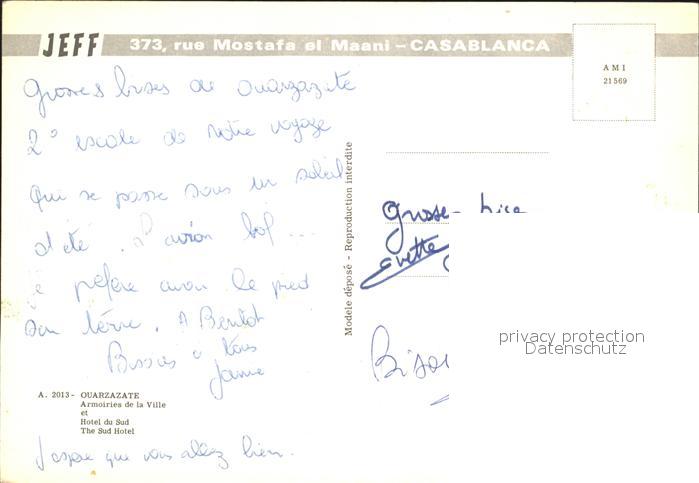 JEFF 373, rue Mostafa el Maani – CASABLANCA
AMI
21569
Grosses bises de Ouarzazate
2° escale de notre voyage
qui se passe sous un soleil
d'été. L'avion bof...
je préfère avoir le pied
sur terre. A Bientot
Bisous à tous
A. 2013 - OUARZAZATE
Armoiries de la Ville
et
Hotel du Sud
The Sud Hotel
J'espère que vous allez bien.
Modèle déposé - Reproduction interdite
Grosse bise
Yvette
Bisou
privacy protection
Datenschutz